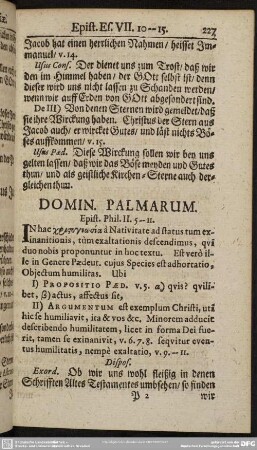 Epist. Es. VII. 10—15. 227
Jacob hat einen herrlichen Nahmen/ heisset Im-
manuel/ v. 14.
Usus Cons. Der dienet uns zum Trost/ daß wir
den im Himmel haben/ der GOtt selbst ist/ denn
dieser wird uns nicht lassen zu Schanden werden/
wenn wir auff Erden von GOtt abgesondert sind.
De III) Von denen Sternen wird gemeldet/ daß
sie ihre Wirckung haben. Christus der Stern aus
Jacob auch/ er wircket Gutes/ und läst nichts Bö-
ses auffkommen/ v. 15.
Usus Pæd. Diese Wirckung sollen wir bey uns
gelten lassen/ daß wir das Böse meyden und Gutes
thun/ und als geistliche Kirchen-Sterne auch der-
gleichen thun.
DOMIN. PALMARUM.
Epist. Phil. II. 5-11.
IN hac à Nativitate ad statum tum ex-
inanitionis, tùm exaltationis descendimus, qvi
duo nobis proponuntur in hoc textu. Est verò il-
le in Genere Pædeut. cujus Species est adhortatio,
Objectum humilitas. Ubi
I) PROPOSITIO PÆD. v. 5. α) qvis? qvili-
bet, β) actus, affectus sit,
II) ARGUMENTUM est exemplum Christi, utì
hic se humiliavit, ita & vos &c. Minorem adducit
describendo humilitatem, licet in forma Dei fue-
rit, tamen se exinanivit, v. 6. 7. 8. seqvitur even-
tus humilitatis, nempè exaltatio, v. 9.—11.
Dispos.
Exord. Ob wir uns wohl fleißig in denen
Schrifften Altes Testamentes umbsehen/ so finden
P 2 wir